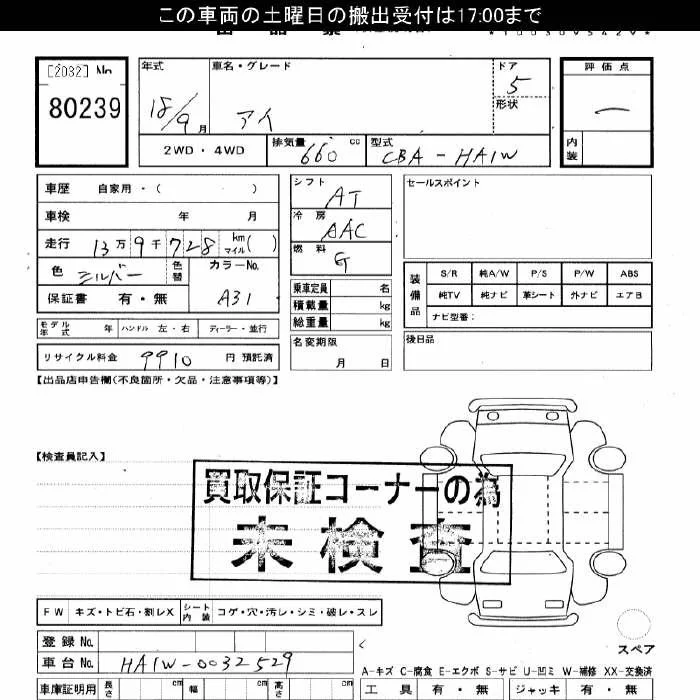 この車両の土曜日の搬出受付は17:00まで
[2032] No
80239
年式
18/9 月
車名・グレード
アイ
ドア
5
形状
評価点
一
内装
2WD・4WD
排気量 660 cc
型式
CBA-HA1W
車歴 自家用・( )
車検 年 月
走行 13万9千728 km マイル ( )
色 シルバー 色替
カラーNo.
A31
保証書 有・無
シフト
AT
冷房
AAC
燃料
G
乗車定員 名
積載量 kg
総重量 kg
セールスポイント
装備品
S/R 純A/W P/S P/W ABS
純TV 純ナビ 革シート 外ナビ エアB
ナビ型番:
モデル年式 年 ハンドル 左・右 ディーラー・並行
リサイクル料金 9910 円 預託済
名変期限
月 日
後日品
【出品店申告欄(不良箇所・欠品・注意事項等)】
【検査員記入】
買取保証コーナーの為
未検査
FW キズ・トビ石・割レX シート内装 コゲ・穴・汚レ・シミ・破レ・スレ
登録No.
車台No. HA1W-0032529
スペア
A-キズ C-腐食 E-エクボ S-サビ U-凹ミ W-補修 XX-交換済
車庫証明用 長さ cm 幅 cm 高さ cm
工具 有・無 ジャッキ 有・無